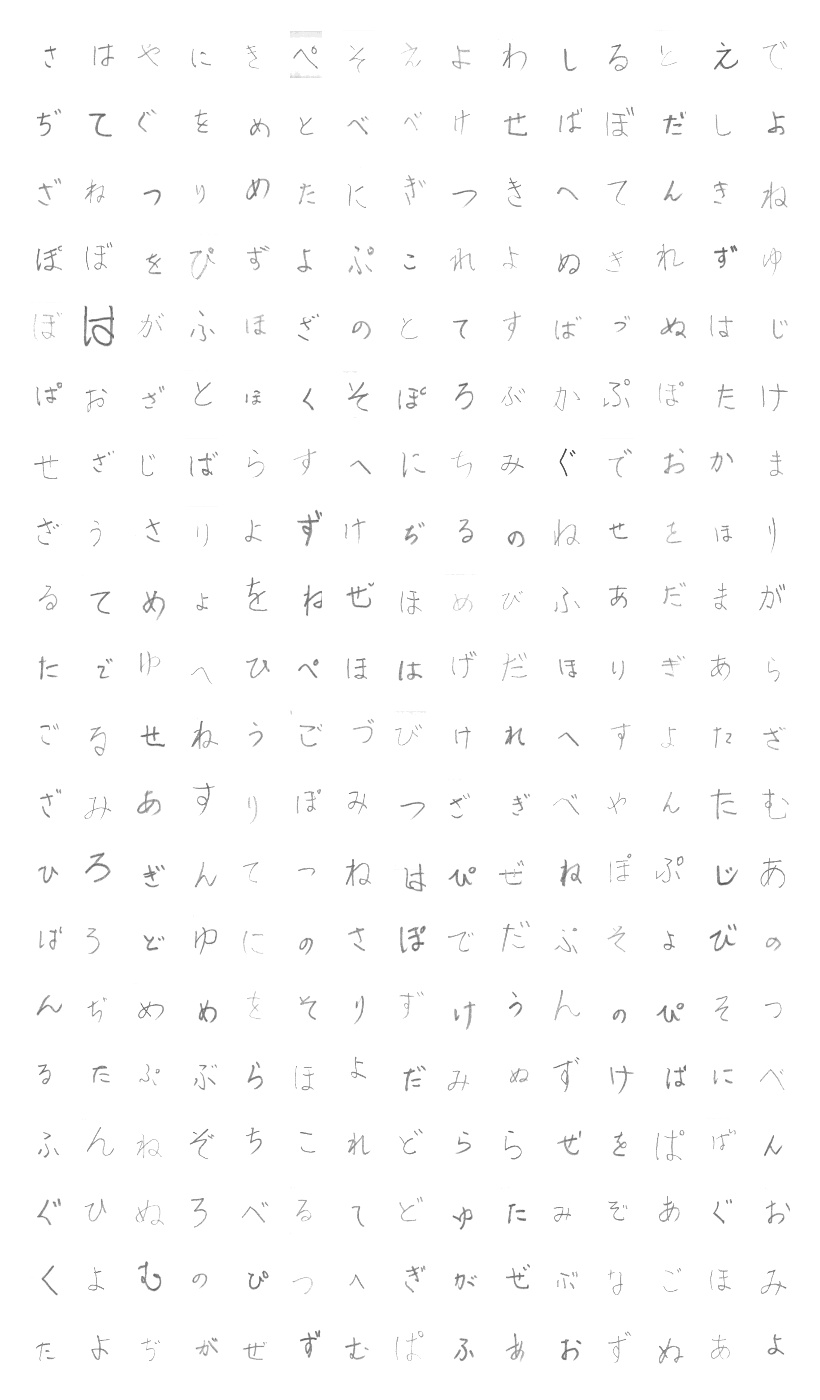 さはやにきぺそえよわしるとえで
ぢてぐをめとべべけせばぼだしよ
ざねつりめたにぎつきへてんきね
ぽぼをぴずよぷこれよぬきれずゆ
ぼはがふほざのとてすばづぬはじ
ぱおざとほくそぽろぶかぷぽたけ
せざじばらすへにちみぐでおかま
ざうさりよずけぢるのねせとほり
るてめょをねぜほめびふあだまが
たでゆへひぺほはげだほりぎあら
ごるせねうごづびけれへすよたざ
ざみあすりぽみつざぎべやんたむ
ひろぎんてつねはぴぜねぽぷじあ
ばろどゆにのさぽでだぷそょびの
んぢめめをそりずけうんのぴそつ
るたぷぶらほよだみぬずけばにべ
ふんねぞちこれどららぜをぱばん
ぐひぬろべるてどゆたみぞあぐお
くよむのぴつへぎがぜぶなごほみ
たよぢがぜずむぱふあおずぬあよ